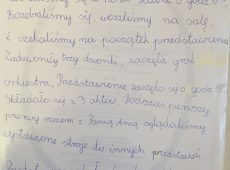 Rozebraliśmy się, weszliśmy na salę
i czekaliśmy na początek przedstawienia.
Zadzwoniły trzy dzwonki, zaczęła grać
orkiestra. Przedstawienie zaczęło się o godz. 18
Składało się z 3 aktów. Podczas pierwszej
przerwy razem z Panią Anią oglądaliśmy
wystawione stroje do innych przedstawień